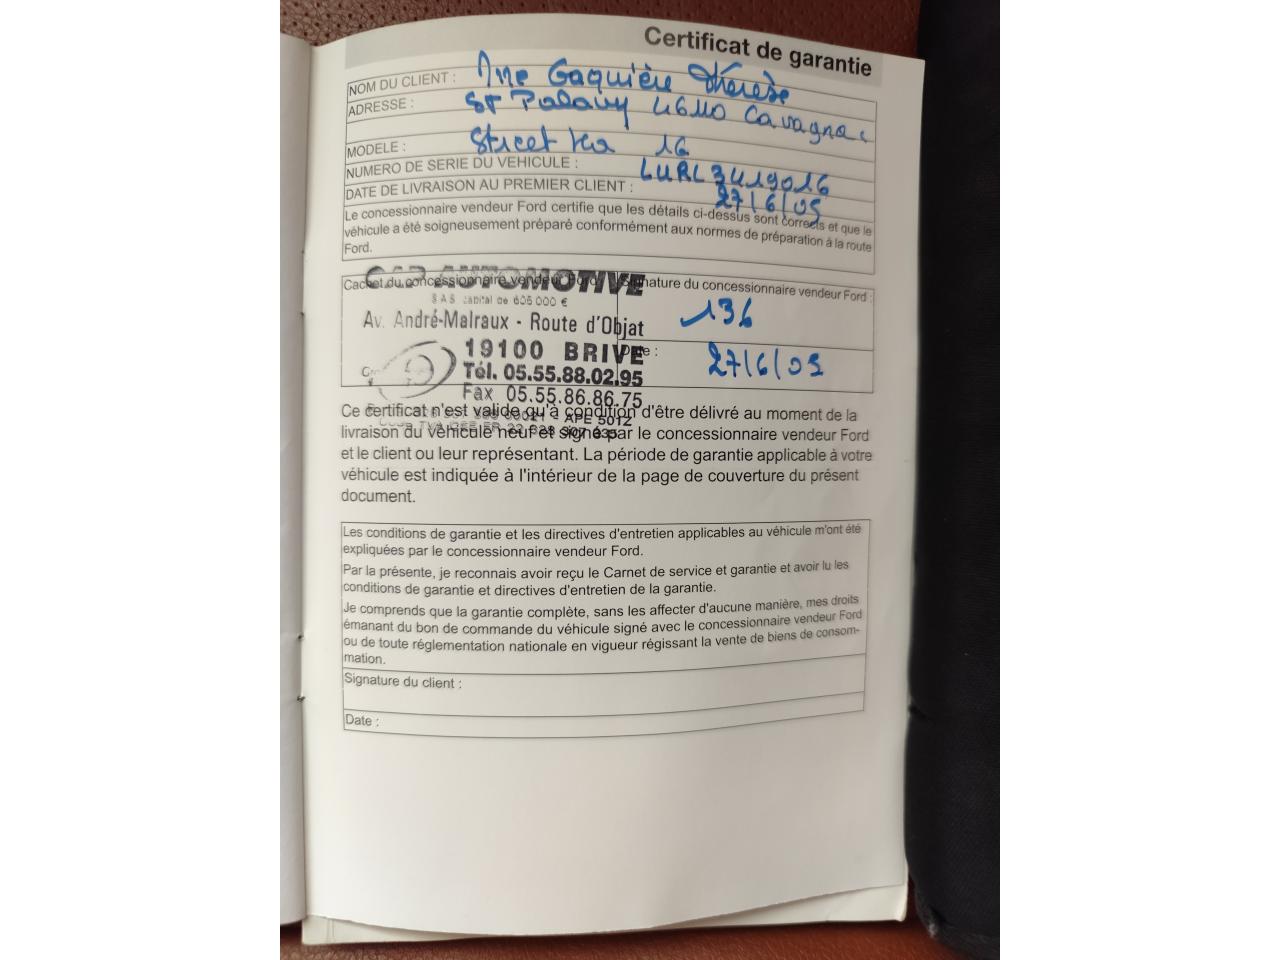 Certificat de garantie
NOM DU CLIENT : Mme Gaquière Thérèse
ADRESSE : St Palavy 46110 Cavagnac
MODELE : Street Ka 16
NUMERO DE SERIE DU VEHICULE :
DATE DE LIVRAISON AU PREMIER CLIENT : 27/6/05
Le concessionnaire vendeur Ford certifie que les détails ci-dessus sont corrects et que le
véhicule a été soigneusement préparé conformément aux normes de préparation à la route
Ford.
Cachet du concessionnaire vendeur Ford
CAP AUTOMOTIVE
SAS capital de 606 000 €
Av. André-Malraux - Route d'Objat
19100 BRIVE
Tél. 05.55.88.02.95
Fax 05.55.86.86.75
APE 501Z
Signature du concessionnaire vendeur Ford :
136
Date : 27/6/05
Ce certificat n'est valide qu'à condition d'être délivré au moment de la
livraison du véhicule neuf et signé par le concessionnaire vendeur Ford
et le client ou leur représentant. La période de garantie applicable à votre
véhicule est indiquée à l'intérieur de la page de couverture du présent
document.
Les conditions de garantie et les directives d'entretien applicables au véhicule m'ont été
expliquées par le concessionnaire vendeur Ford.
Par la présente, je reconnais avoir reçu le Carnet de service et garantie et avoir lu les
conditions de garantie et directives d'entretien de la garantie.
Je comprends que la garantie complète, sans les affecter d'aucune manière, mes droits
émanant du bon de commande du véhicule signé avec le concessionnaire vendeur Ford
ou de toute réglementation nationale en vigueur régissant la vente de biens de consom-
mation.
Signature du client :
Date :